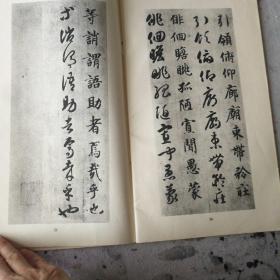 引領俯仰廊廟束帶矜莊
引領俯仰廊廟束帶矜莊
徘徊瞻眺孤陋寡聞愚蒙
徘徊瞻眺孤陋寡聞愚蒙
等誚謂語助者焉哉乎也
等誚謂語助者焉哉乎也